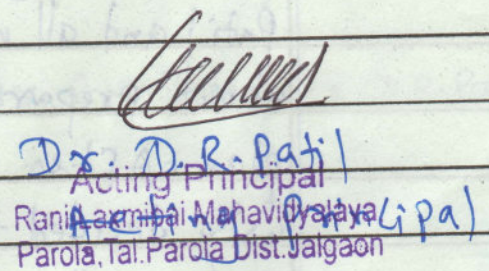 Dr. D. R. Patil
Acting Principal
Acting Principal
Rani Laxmibai Mahavidyalaya
Parola, Tal. Parola Dist. Jalgaon